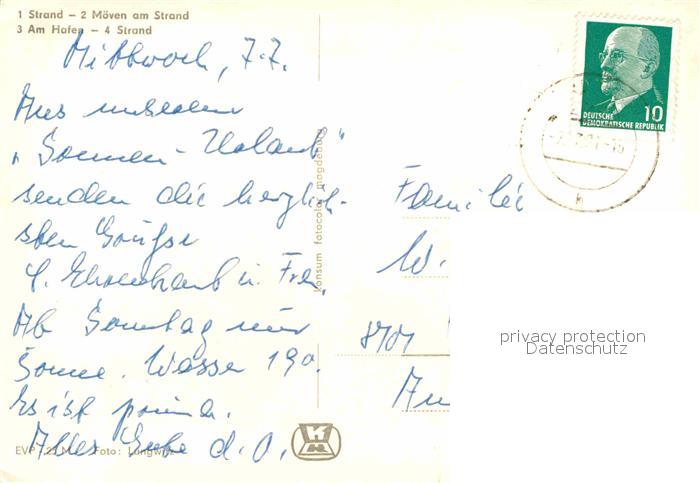 1 Strand – 2 Möven am Strand
3 Am Hafen – 4 Strand
Mittwoch, 7.7.
Aus unserem
„Sonnen-Urlaub"
senden die herzlich-
sten Grüße
u. Frau.
Ab Sonntag nur
Sonne. Wasser 19°.
Es ist prima.
Alles Gute d. O.
EVP
Foto: Lungwitz
konsum fotocolor magdeburg
DEUTSCHE
DEMOKRATISCHE REPUBLIK
10
Familie
W.
8701
privacy protection
Datenschutz